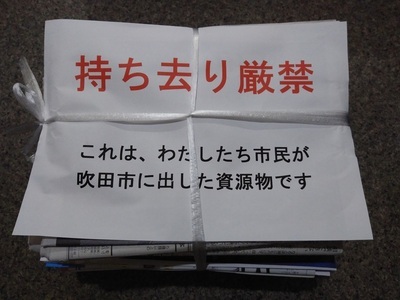 持ち去り厳禁
これは、わたしたち市民が
吹田市に出した資源物です